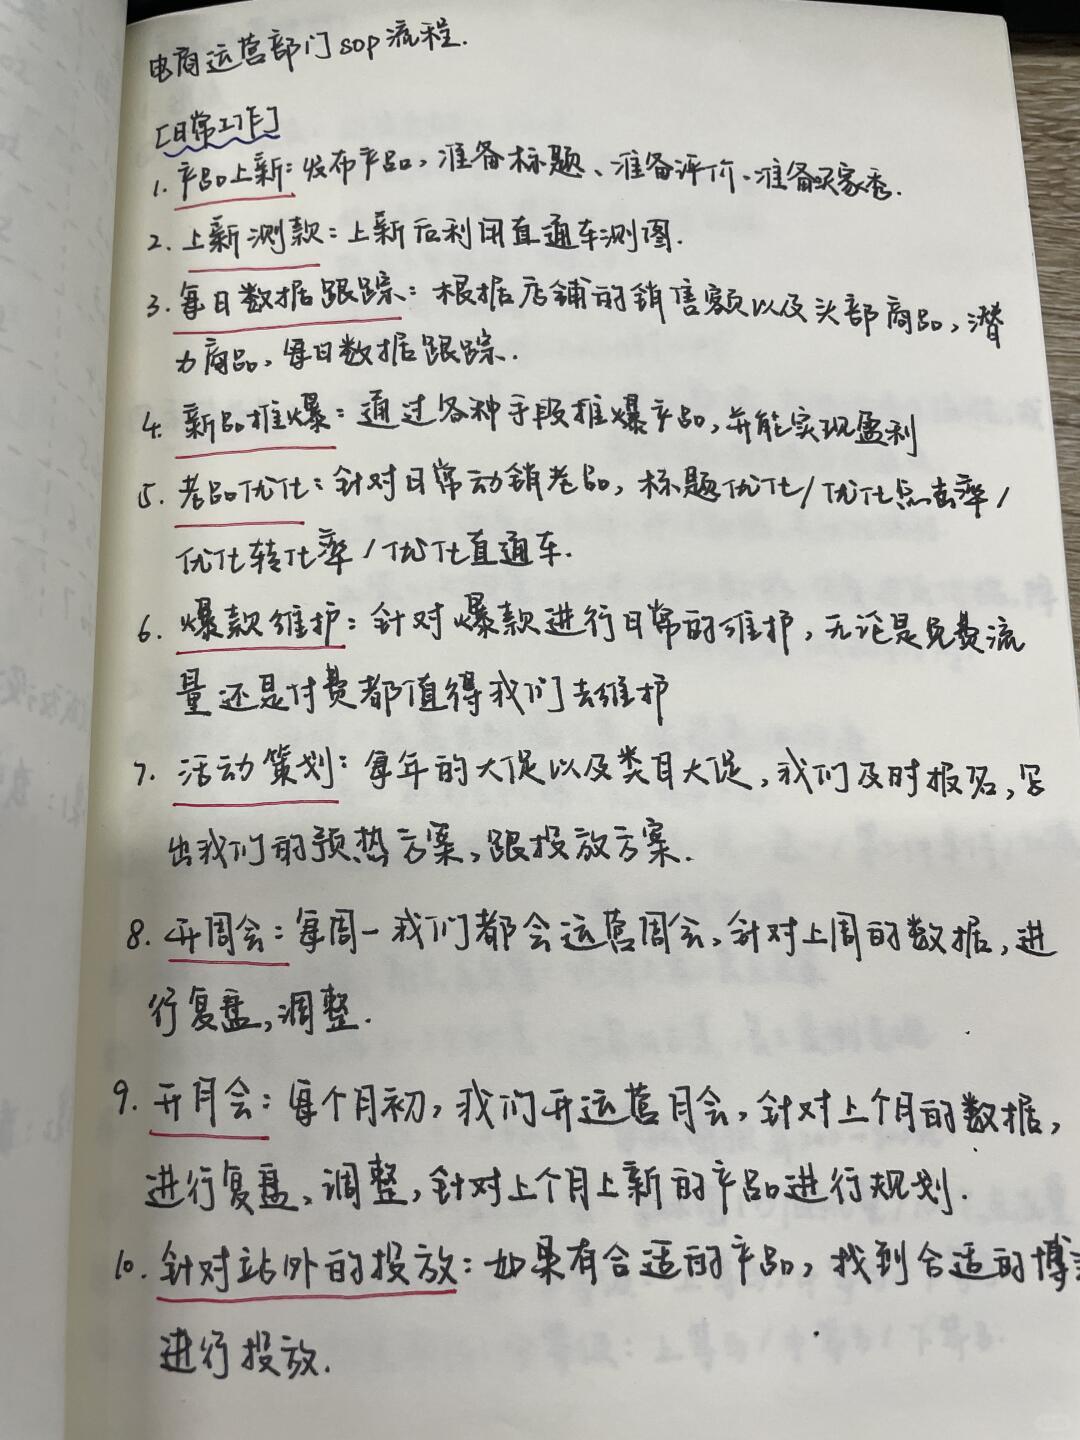 电商运营部门sop流程.
[日常工作]
1. 产品上新: 发布产品, 准备标题、准备评价、准备买家秀.
2. 上新测款: 上新后利用直通车测图.
3. 每日数据跟踪: 根据店铺的销售额以及头部商品, 潜
力商品, 每日数据跟踪.
4. 新品推爆: 通过各种手段推爆产品, 并能实现盈利
5. 老品优化: 针对日常动销老品, 标题优化/优化点击率/
优化转化率/优化直通车.
6. 爆款维护: 针对爆款进行日常的维护, 无论是免费流
量还是付费都值得我们去维护
7. 活动策划: 每年的大促以及类目大促, 我们及时报名, 写
出我们的预热方案, 跟投放方案.
8. 开周会: 每周一我们都会运营周会, 针对上周的数据, 进
行复盘, 调整.
9. 开月会: 每个月初, 我们开运营月会, 针对上个月的数据,
进行复盘、调整, 针对上个月上新的产品进行规划.
10. 针对站外的投放: 如果有合适的产品, 找到合适的博
进行投放.